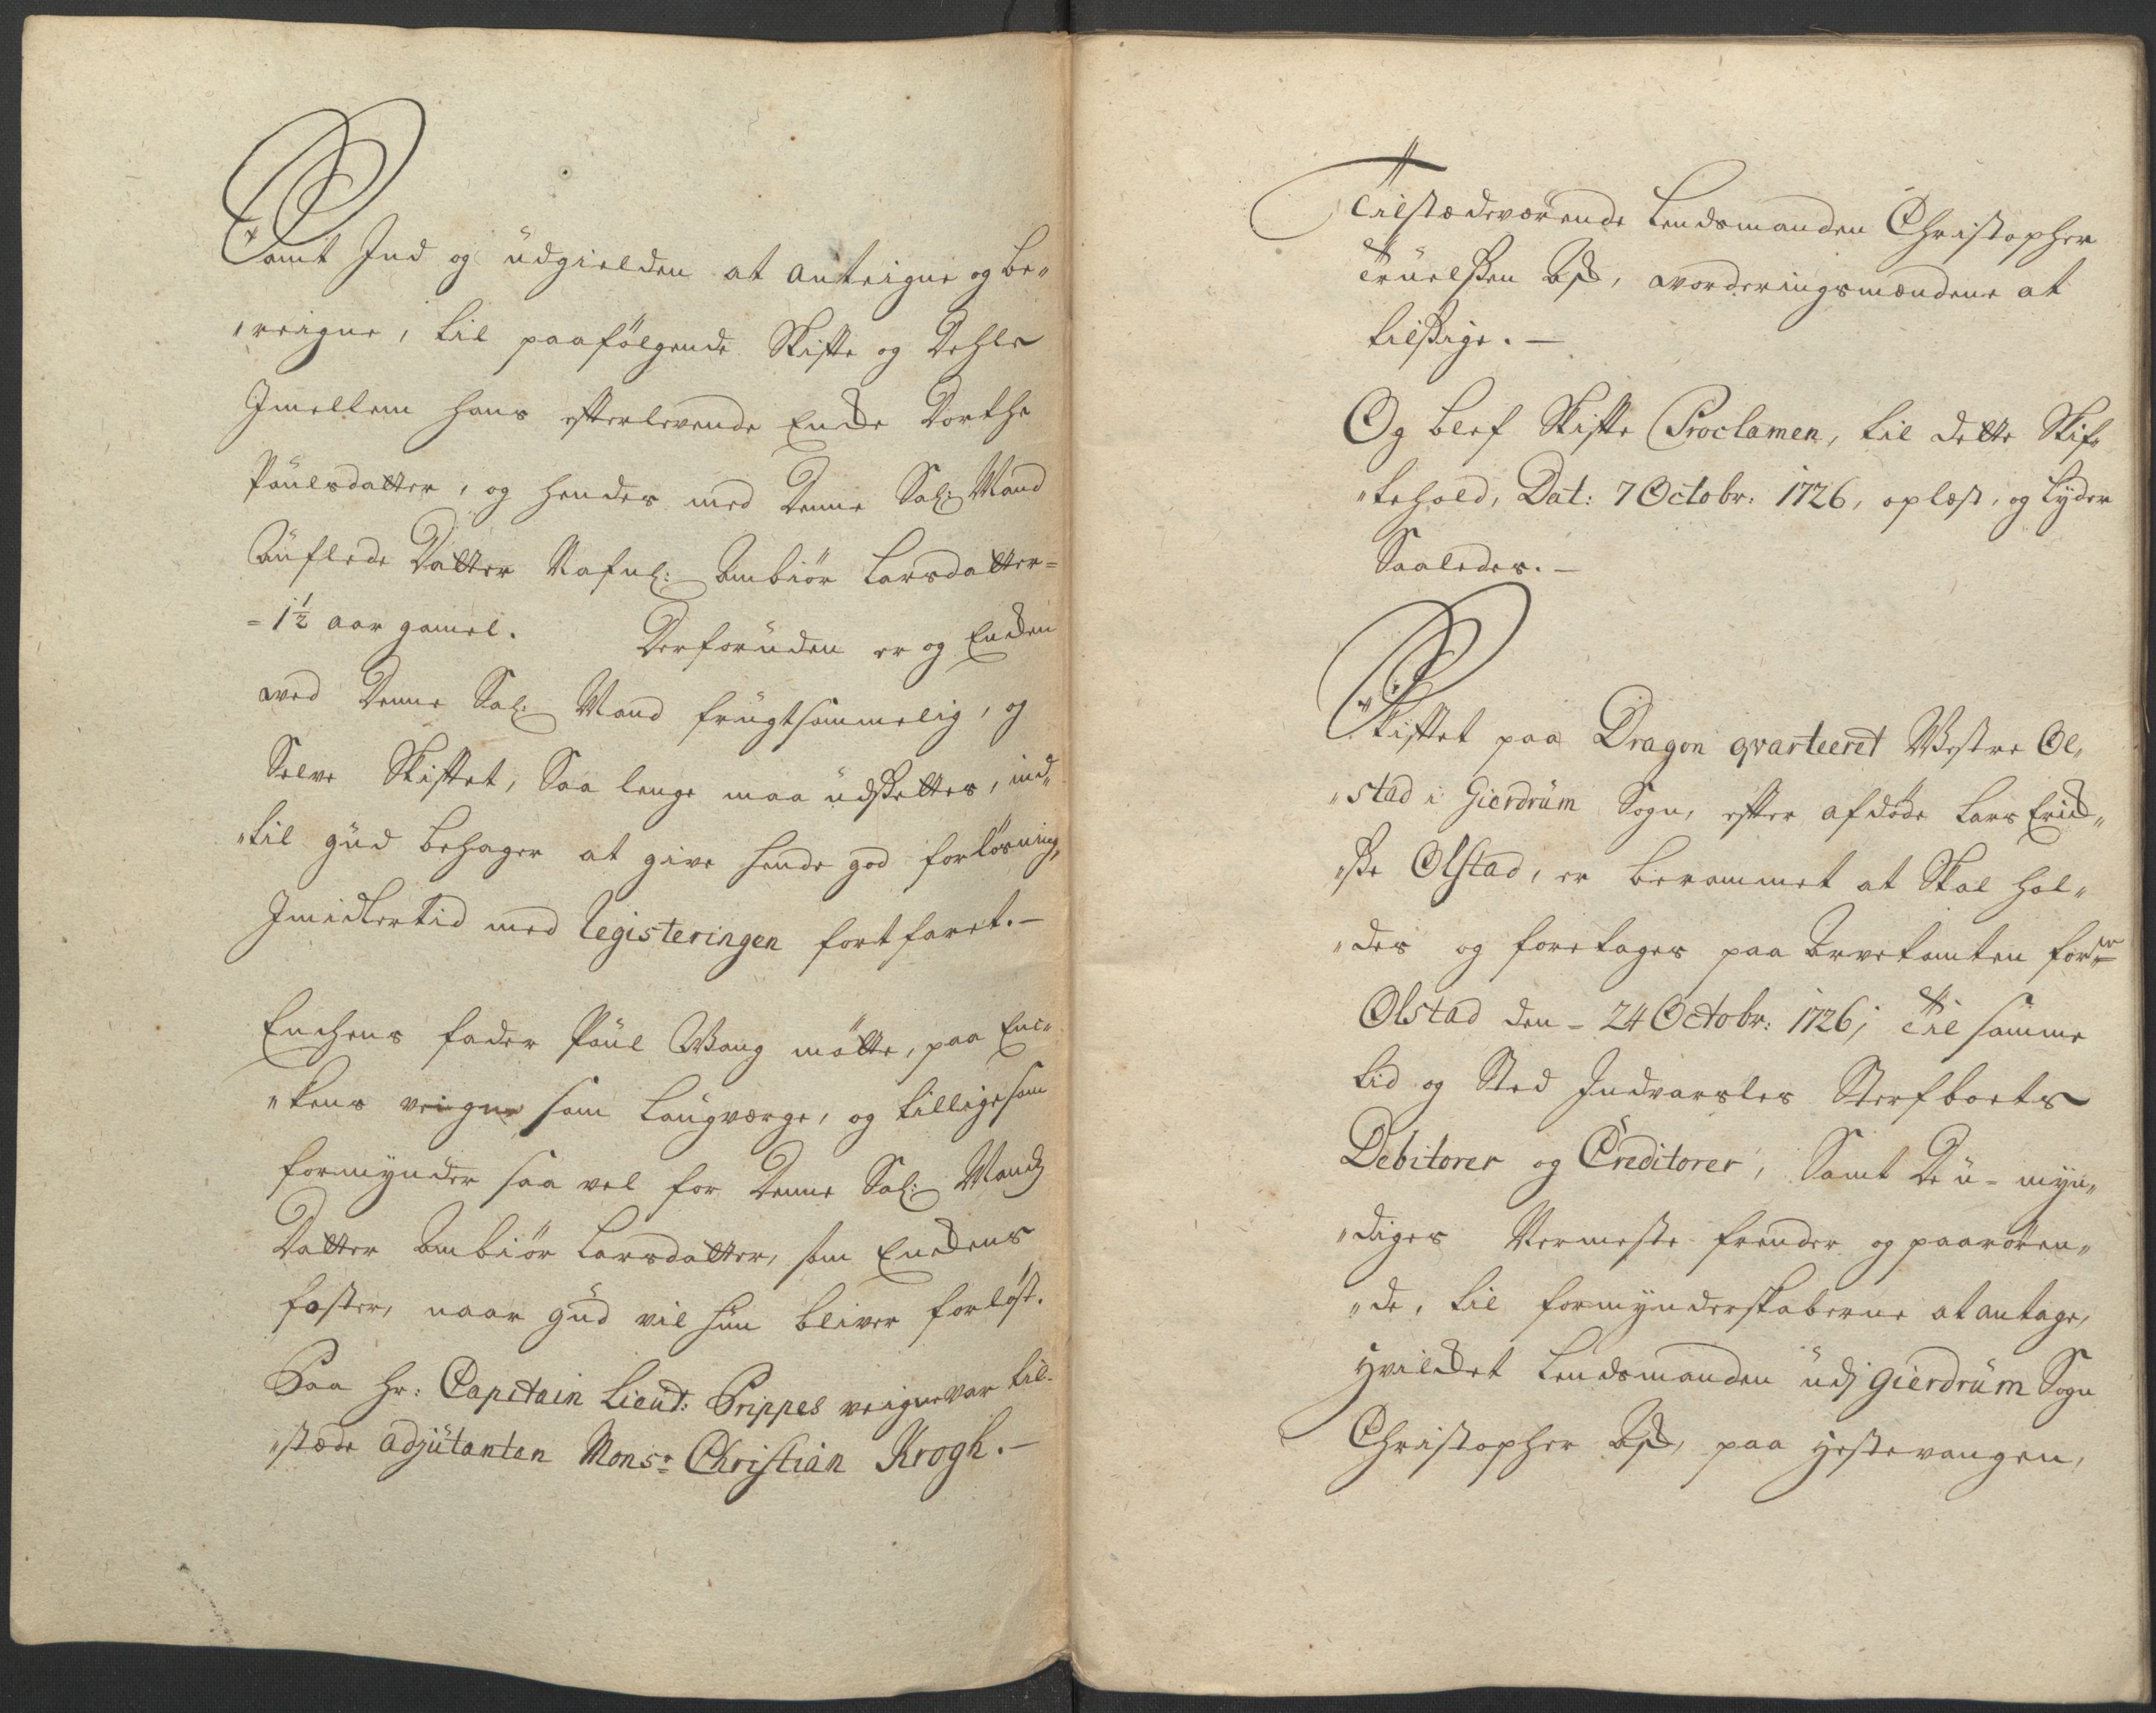 Samt Ind og udgielden at anteigne og be„
„reigne, til paafølgende Skifte og Dehle
Imellem hans efterlevende Encke Dorthe
Poulsdatter, og hendes med denne Sal: Mand
Auflede Datter Nafnl: Anbiør Larsdatter =
= 1½ aar gamel. Derforuden er og Encken
ved denne Sal: Mand frugtsommelig, og
Selve Skiftet, Saa lenge maa udsættes, ind„
„til gud behager at give hende god forløsning,
Imidlertid med Registeringen fortfaret. —
Enchens fader Poul Wang mötte, paa Enc„
„kens veigne som Laugværge, og tilligesom
formynder saa vel for denne Sal: Mands
Datter Anbiør Larsdatter, som Enckens
foster, naar gud vil hun bliver forløst.
Paa Hr: Capitain Lieut: Prippes veigne var til„
„stæde adjutanten Monsr: Christian Krogh. —
Tilstædeværende Lendsmanden Christopher
Truelssen , vorderingsmændene at
tilsige. —
Og blef Skifte Proclamen, til dette Skif„
„tehold, Dat: 7 Octobr: 1726, oplæst, og lyder
Saaledes. —
Skiftet paa Dragon qvarteeret Westre Ol„
„stad i Gierdrum Sogn, efter afdøde Lars Erich„
„ße Olstad, er berammet at Skal hol„
„des og foretages paa Arvetomten forne
Olstad den – 24 Octobr: 1726; Til samme
tid og Sted Indvarsles Sterfboets
Debitorer og Creditorer, Samt De u-myn„
„diges Nermeste frender og paarören„
„de, til formynderskaberne at antage,
Hvilcket Lendsmanden udj Gierdrum Sogn
Christopher , paa Hestevangen,